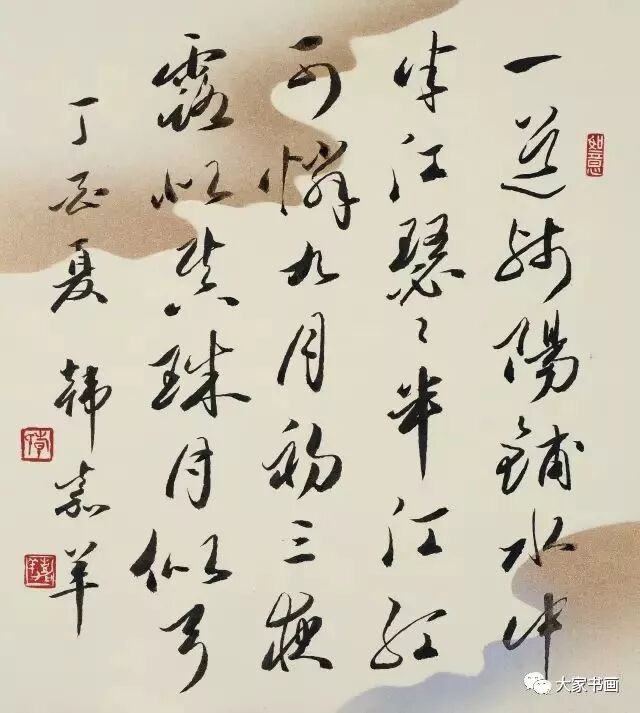 如意
一道残陽鋪水中
半江瑟〻半江红
可憐九月初三夜
露似真珠月似弓
丁酉夏 韩嘉羊
大家书画